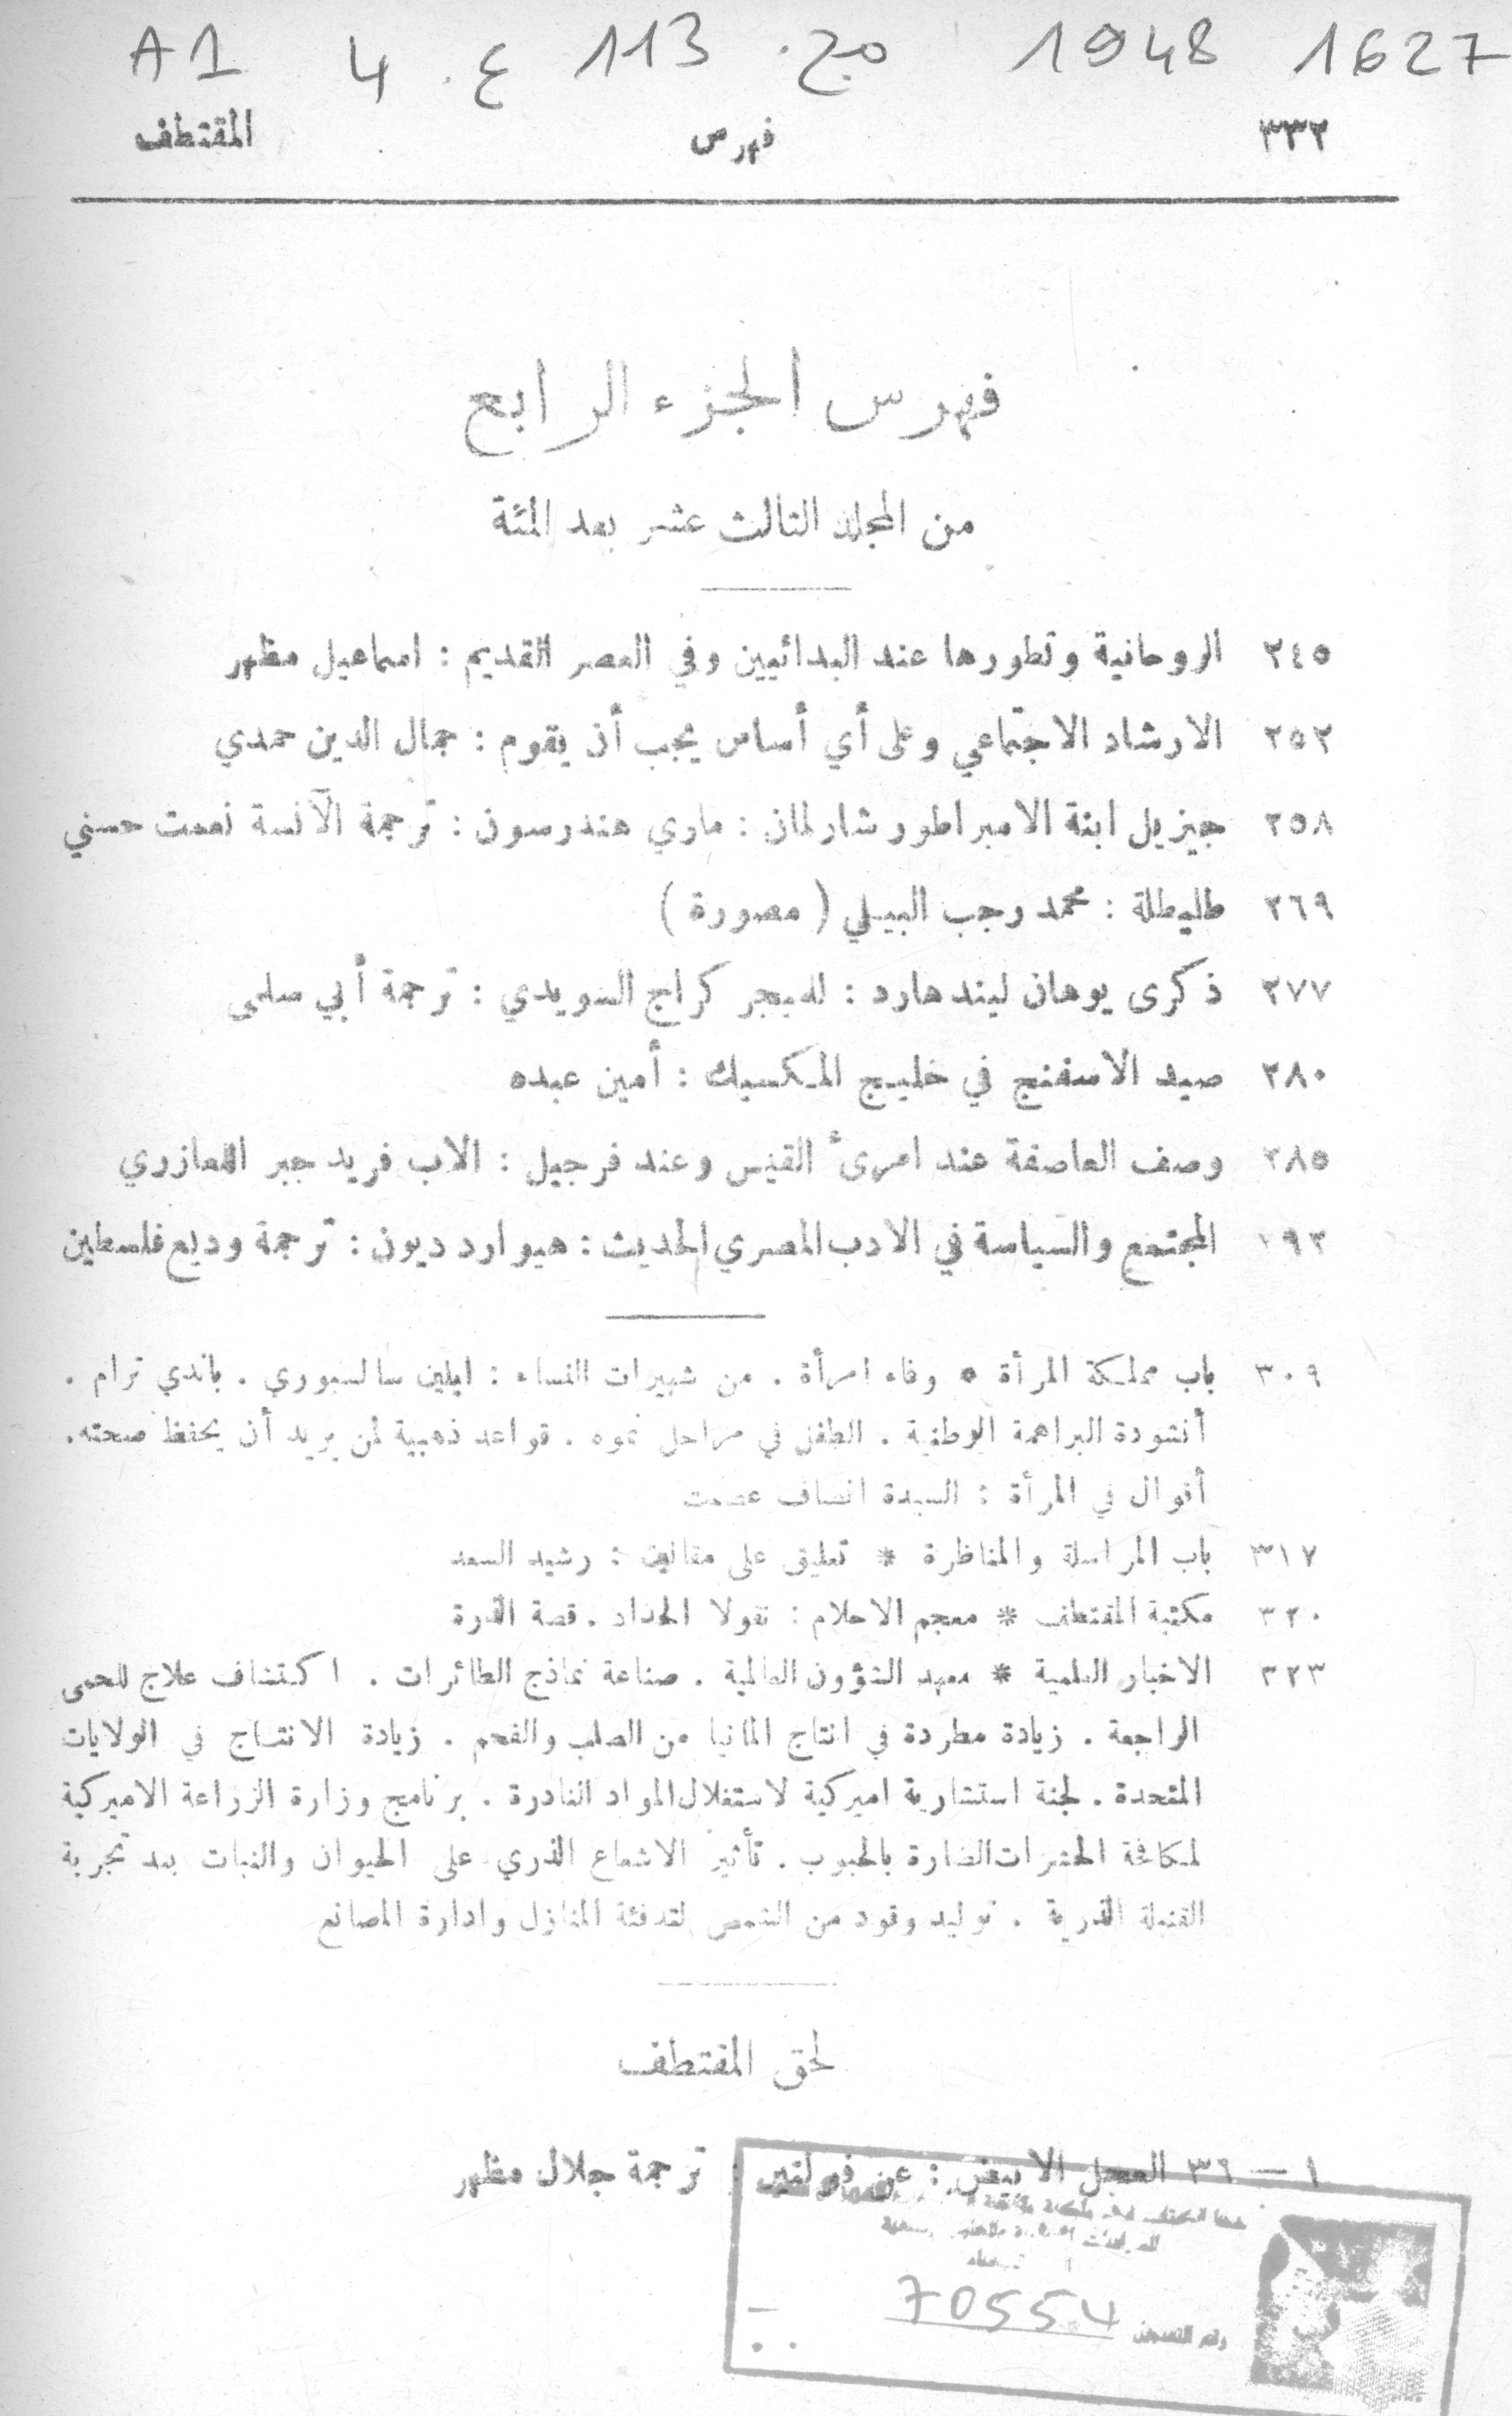 A1 4 ع. 113 مج. 1948 1627
٣٣٢ فهرس المقتطف
فهرس الجزء الرابع
من المجلد الثالث عشر بعد المئة
٢٤٥ الروحانية وتطورها عند البدائيين وفي العصر القديم : اسماعيل مظهر
٢٥٢ الارشاد الاجتماعي وعلى أي أساس يجب أن يقوم : جمال الدين حمدي
٢٥٨ جيزيل ابنة الامبراطور شارلمان : ماري هندرسون : ترجمة الآنسة نعمت حسني
٢٦٩ طليطلة : محمد رجب البيلي ( مصورة )
٢٧٧ ذكرى يوهان ليندهارد : للميجر كراج السويدي : ترجمة أبي سلمى
٢٨٠ صيد الاسفنج في خليج المكسيك : أمين عبده
٢٨٥ وصف العاصفة عند امرئ القيس وعند فرجيل : الاب فريد جبر اللعازري
٢٩٣ المجتمع والسياسة في الادب المصري الحديث : هيوارد ديون : ترجمة وديع فلسطين
٣٠٩ باب مملكة المرأة * وفاء امرأة . من شهيرات النساء : ايلين سالسبوري . باندي ترام .
أنشودة البراهمة الوطنية . الطفل في مراحل نموه . قواعد ذهبية لمن يريد أن يحفظ صحته .
أقوال في المرأة : السيدة انصاف عصمت
٣١٧ باب المراسلة والمناظرة * تعليق على مقالين : رشيد السعد
٣٢٠ مكتبة المقتطف * معجم الاحلام : نقولا الحداد . قصة الذرة
٣٢٣ الاخبار العلمية * معهد الشؤون العالمية . صناعة نماذج الطائرات . اكتشاف علاج للحمى
الراجعة . زيادة مطردة في انتاج المانيا من الصلب والفحم . زيادة الانتاج في الولايات
المتحدة . لجنة استشارية اميركية لاستغلال المواد النادرة . برنامج وزارة الزراعة الاميركية
لمكافحة الحشرات الضارة بالحبوب . تأثير الاشعاع الذري على الحيوان والنبات بعد تجربة
القنبلة الذرية . توليد وقود من الشمس لتدفئة المنازل وادارة المصانع
لحق المقتطف
١ — ٣٦ العجل الابيض : عن فولتير : ترجمة جلال مظهر
رقم التسجيل 70554